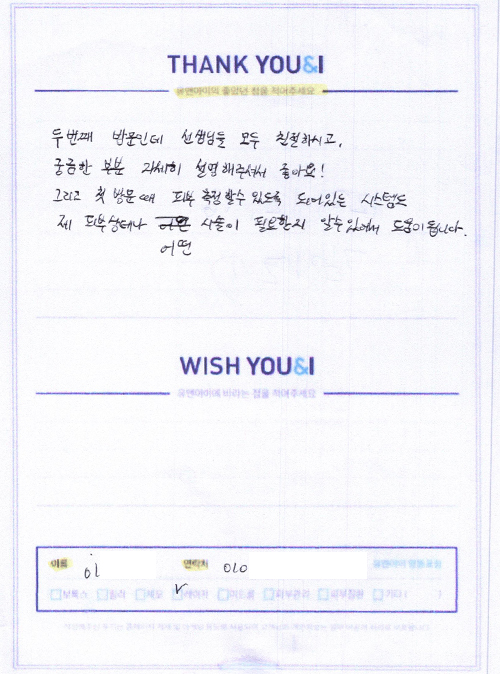 THANK YOU&I
유앤아이의 좋았던 점을 적어주세요
두번째 방문인데 선생님들 모두 친절하시고,
궁금한 부분 자세히 설명해주셔서 좋아요!
그리고 첫 방문때 피부 측정할수 있도록 되어있는 시스템도
제 피부상태나 시술이 필요한지 알수있어서 도움이 됩니다.
어떤
WISH YOU&I
유앤아이에 바라는 점을 적어주세요
이름 이 연락처 010
보톡스 필러 제모 레이저 여드름 피부관리 피부질환 기타 ( )